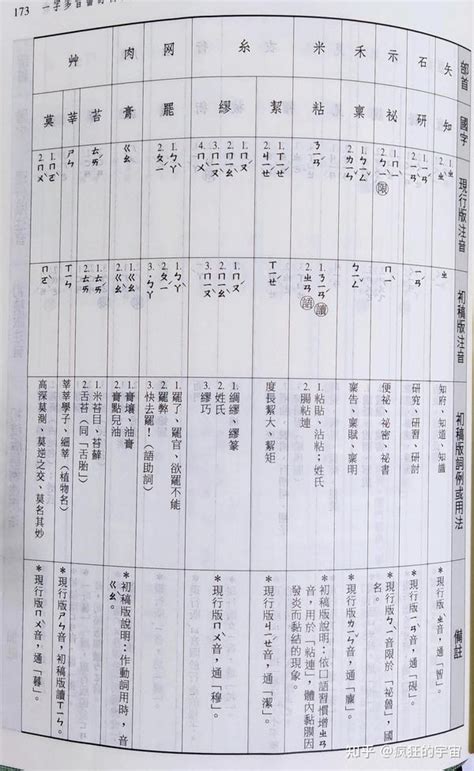 173 一字多音審訂
部首 國字 現行版注音 初稿版注音 初稿版詞例或用法 備註
矢 知 1.ㄓ 2.ㄓˋ ㄓ 知府、知道、知識 ＊現行版ㄓˋ音，通「智」。
石 研 1.ㄧㄢˊ 2.ㄧㄢˋ ㄧㄢˊ 研究、研習、研討 ＊現行版ㄧㄢˋ音，通「硯」。
示 祕 1.ㄇㄧˋ 2.ㄅㄧˋ限 ㄇㄧˋ 便祕、祕密、祕書 ＊現行版ㄅㄧˋ音限於「祕魯」國名。
禾 稟 1.ㄅㄧㄥˇ 2.ㄌㄧㄣˇ ㄅㄧㄥˇ 稟告、稟賦、稟明 ＊現行版ㄌㄧㄣˇ音，通「廩」。
米 粘 ㄋㄧㄢˊ 1.ㄋㄧㄢˊ讀 2.ㄓㄢ語 1.粘貼、沾粘；姓氏 2.腸粘連 ＊初稿版說明：依口語習慣增ㄓㄢ音，用於「粘連」，體內黏膜因發炎而黏結的現象。
糸 絜 1.ㄒㄧㄝˊ 2.ㄐㄧㄝˊ ㄒㄧㄝˊ 度長絜大、絜矩 ＊現行版ㄐㄧㄝˊ音，通「潔」。
繆 1.ㄇㄡˊ 2.ㄇㄧㄠˋ 3.ㄇㄧㄡˋ 4.ㄇㄨˋ 1.ㄇㄡˊ 2.ㄇㄧㄠˋ 3.ㄇㄧㄡˋ 1.綢繆、繆篆 2.姓氏 3.繆巧 ＊現行版ㄇㄨˋ音，通「穆」。
网 罷 1.ㄅㄚˋ 2.ㄆㄧˊ 1.ㄅㄚˋ 2.ㄆㄧˊ 3.˙ㄅㄚ 1.罷了、罷官、欲罷不能 2.罷弊 3.快去罷！（語助詞）
肉 膏 ㄍㄠ 1.ㄍㄠ 2.ㄍㄠˋ 1.膏壤、油膏 2.膏點兒油 ＊初稿版說明：作動詞用時，音ㄍㄠˋ。
艸 苔 1.ㄊㄞˊ 2.ㄊㄞ 1.ㄊㄞˊ 2.ㄊㄞ 1.米苔目、苔蘚 2.舌苔（同「舌胎」）
莘 ㄕㄣ ㄒㄧㄣ 莘莘學子、細莘（植物名） ＊現行版ㄕㄣ音，初稿版讀ㄒㄧㄣ。
莫 1.ㄇㄛˋ 2.ㄇㄨˋ ㄇㄛˋ 高深莫測、莫逆之交、莫名其妙 ＊現行版ㄇㄨˋ音，通「暮」。
知乎 @瘋狂的宇宙